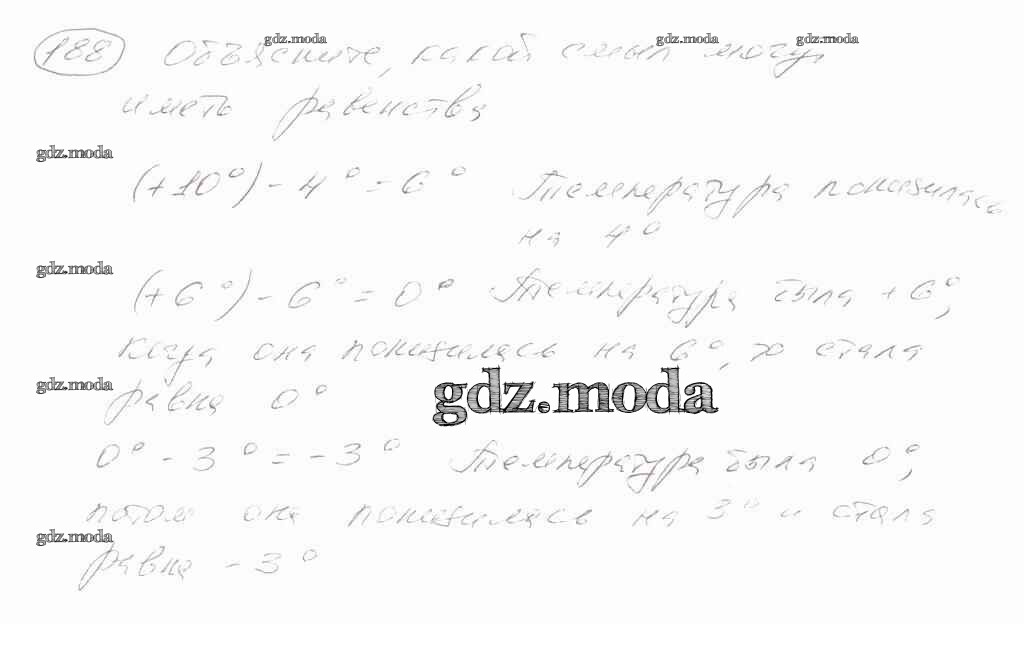 gdz.moda gdz.moda gdz.moda
188 Объясните, какой смысл могут
иметь равенства
gdz.moda
(+10°) - 4° = 6° Температура понизилась
на 4°
gdz.moda
(+6°) - 6° = 0° Температура была +6°,
когда она понизилась на 6°, то стала
gdz.moda
равна 0°
gdz.moda
0° - 3° = -3° Температура была 0°,
потом она понизилась на 3° и стала
gdz.moda
равна -3°